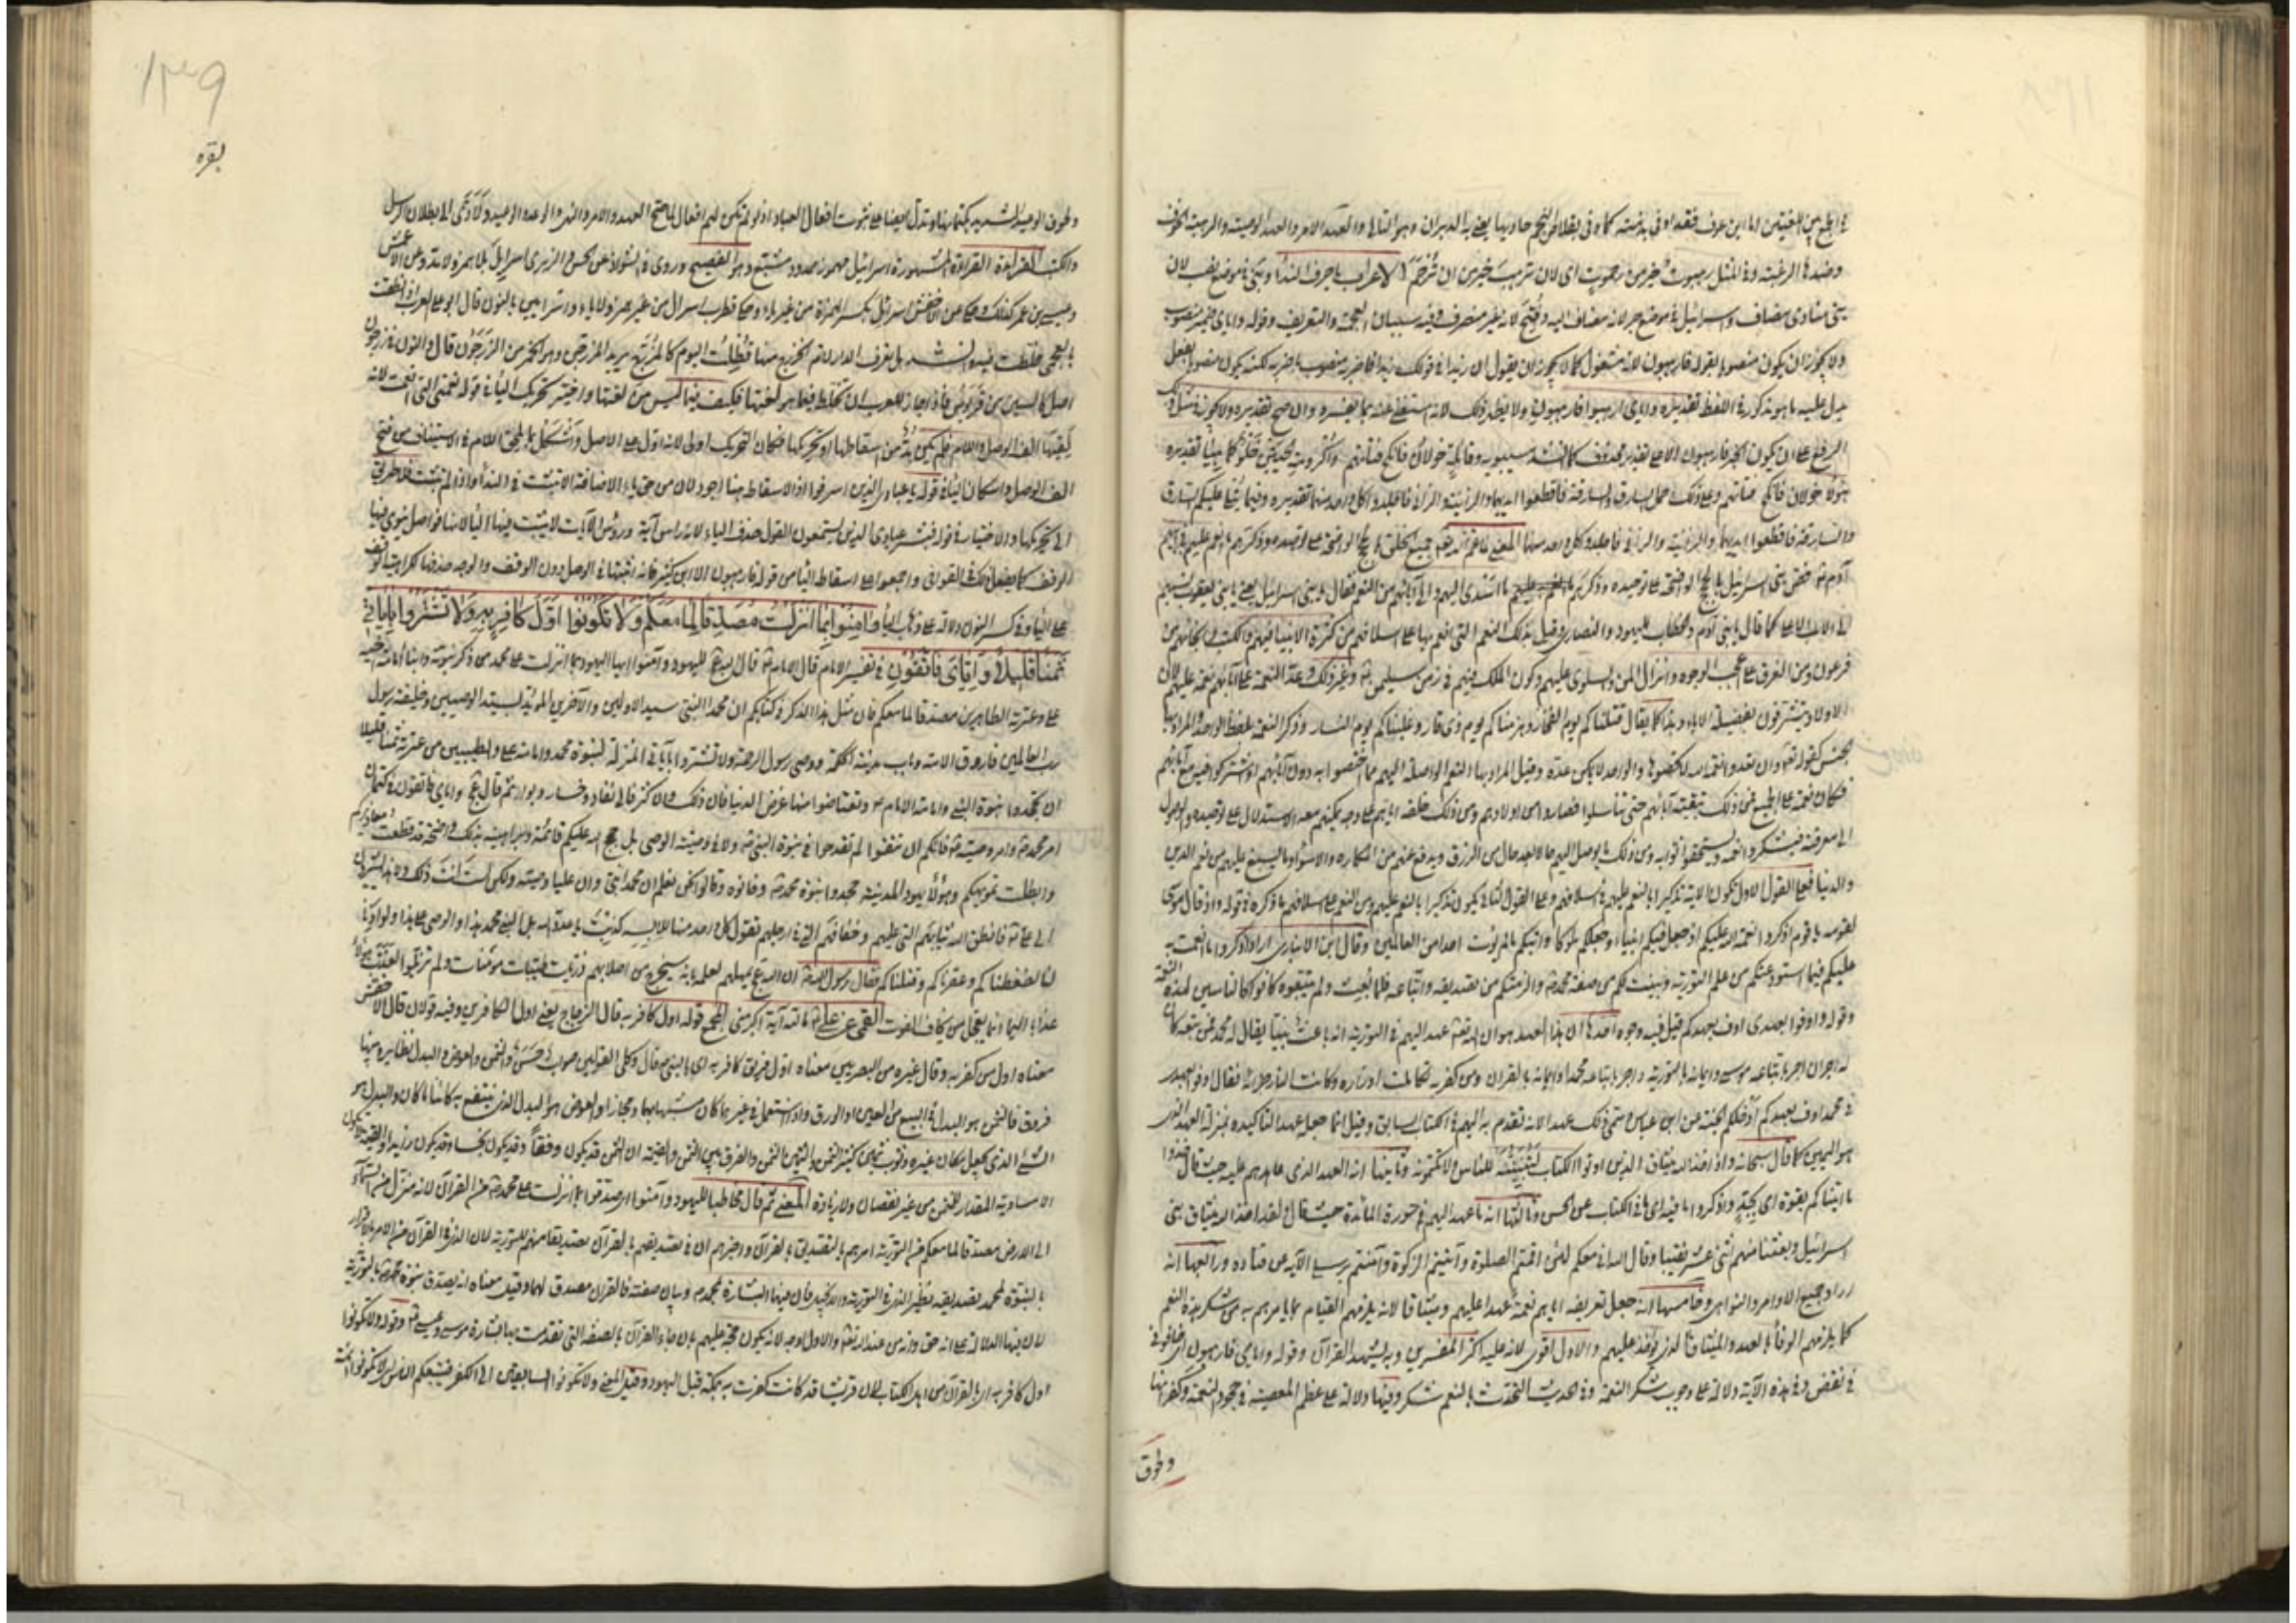 في الجمع بين اللغتين اما ابن عوف فقد اوفى بذمته كما وفى بقلاص النجم حاديها يعني به الدبران وهو التالي والعهد الامر والعهد الوصية والرهبة الخوف
وضدها الرغبة وفي المثل رهبوت خير من رحموت اي لان ترهب خير من ان ترحم الاعراب يا حرف النداء وبني في موضع نصب لان
بني منادى مضاف واسرائيل في موضع جر لانه مضاف اليه وفتح لانه غير منصرف وفيه سببان العجمة والتعريف وقوله واياي ضمير منصوب
ولا يجوز ان يكون منصوبا بقوله فارهبون لانه مشغول كما لا يجوز ان يقول ان زيدا في قولك زيدا فاضربه منصوب باضربه لكنه يكون منصوبا بفعل
يدل عليه ما هو مذكور في اللفظ تقديره واياي ارهبوا فارهبون ولا يظهر ذلك لانه استغنى عنه بما يفسره وان صح تقديره ولا يجوز في مثل ذلك
الرفع على ان يكون الخبر فارهبون الا على تقدير محذوف كما انشد سيبويه وقائلة خولان فانكح فتاتهم واكرومة الحيين خلو كما هيا تقديره
هؤلاء خولان فانكح فتاتهم وعلى ذلك حمل السارق والسارقة فاقطعوا ايديهما والزانية والزاني فاجلدوا كل واحد منهما تقديره وفيما يتلى عليكم السارق
والسارقة فاقطعوا ايديهما والزانية والزاني فاجلدوا كل واحد منهما المعنى لما عم الله تعالى جميع الخلق بالحجج الواضحة على توحيده وذكرهم ما انعم عليهم في ابيهم
آدم خص بني اسرائيل بالحجج الواضحة على توحيده وذكرهم ما اسدى اليهم والى آبائهم من النعم فقال يا بني اسرائيل يعني يا بني يعقوب نسبهم
الى الاب الاعلى كما قال يا بني آدم والخطاب لليهود والنصارى وقيل بذلك النعم التي انعم بها على اسلافهم من كثرة الانبياء فيهم والكتب وانجائهم من
فرعون ومن الغرق على اعجب الوجوه وانزال المن والسلوى عليهم وكون الملك فيهم في زمن سليمن وغير ذلك وعد النعمة على آبائهم نعمة عليهم لان
الاولاد يتشرفون بفضيلة الاباء وهذا كما يقال قتلناكم يوم الفخار وهزمناكم يوم ذي قار وغلبناكم يوم النسار وذكر النعمة بلفظ الواحد والمراد بها
الجنس كقوله تعالى وان تعدوا نعمة الله لا تحصوها والواحد لا يمكن عده وقيل المراد بها النعم الواصلة اليهم مما اختصوا به دون آبائهم او اشتركوا فيه مع آبائهم
فكان نعمة على الجميع فمن ذلك تبقية آبائهم حتى تناسلوا فصاروا من اولادهم ومن ذلك خلقه اياهم على وجه يمكنهم معه الاستدلال على توحيده والوصول
الى معرفته فيشكروا نعمه ويستحقوا ثوابه ومن ذلك ما يوصل اليهم حالا بعد حال من الرزق ويدفع عنهم من المكاره والاسواء وما يسبغ عليهم من نعم الدين
والدنيا فعلى القول الاول تكون الاية تذكيرا بالنعم عليهم في اسلافهم وعلى القول الثاني يكون تذكيرا بالنعم عليهم ومن النعم على اسلافهم ما ذكره في قوله واذ قال موسى
لقومه يا قوم اذكروا نعمة الله عليكم اذ جعل فيكم انبياء وجعلكم ملوكا وآتيكم ما لم يؤت احدا من العالمين وقال ابن الانباري اراد اذكروا ما انعمت به
عليكم فيما استودعتكم من علم التورية وبينت لكم من صفة محمد والزمتكم من تصديقه واتباعه فلما بعث ولم يتبعوه كانوا كالناسين لهذه النعمة
وقوله واوفوا بعهدي اوف بعهدكم قيل فيه وجوه احدها ان هذا العهد هو ان الله تعالى عهد اليهم في التورية انه باعث نبيا يقال له محمد فمن تبعه كان
له اجران اجر باتباعه موسى وايمانه بالتورية واجر باتباعه محمدا وايمانه بالقران ومن كفر به تكاملت اوزاره وكانت النار جزاءه فقال اوفوا بعهدي
في محمد اوف بعهدكم ادخلكم الجنة عن ابن عباس سمى ذلك عهدا لانه تقدم به اليهم في الكتاب السابق وقيل انما جعله عهدا لتاكيده بمنزلة العهد الذي
هو اليمين كما قال سبحانه واذ اخذ الله ميثاق الذين اوتوا الكتاب لتبيننه للناس ولا تكتمونه وثانيها انه العهد الذي عاهدهم عليه حيث قال خذوا
ما آتيناكم بقوة اي بجد واذكروا ما فيه اي ما في الكتاب عن الحسن وثالثها انه ما عهد اليهم في سورة المائدة حيث قال ولقد اخذ الله ميثاق بني
اسرائيل وبعثنا منهم اثني عشر نقيبا وقال الله اني معكم لئن اقمتم الصلوة وآتيتم الزكوة وآمنتم برسلي الآية عن قتادة ورابعها انه
اراد جميع الاوامر والنواهي وخامسها انه جعل تعريفه اياهم نعمه عهدا عليهم وميثاقا لانه يلزمهم القيام بما يامرهم به من شكر هذه النعم
كما يلزمهم الوفاء بالعهد والميثاق الذي يؤخذ عليهم والاول اقوى لانه عليه اكثر المفسرين وبه يشهد القرآن وقوله واياي فارهبون اي خافوني
في نقض وفي هذه الآية دلالة على وجوب شكر النعمة وفي الحديث التحدث بالنعم شكر وفيها دلالة على عظم المعصية في جحود النعمة وكفرانها
ولحوق
١٣٩
بقره
ولحوق الوعيد الشديد بكتمانها وتدل ايضا على ثبوت افعال العباد اذ لو لم تكن لهم افعال لما صح العهد والامر والنهي والوعد والوعيد ولادى الى بطلان الرسل
والكتب القراءة القراءة المشهورة اسرائيل مهموز ممدود مشبع وهو الفصيح وروي في الشواذ عن الحسن والزهري اسرايل بلا همز ولا مد وعن الاعمش
وعيسى بن عمر كذلك وحكي عن الاخفش اسرائل بكسر الهمزة من غير ياء وحكى قطرب اسرال من غير همز ولا ياء واسرايين بالنون قال ابو علي العرب اذا نطقت
بالعجمي خلطت فيه انشد هل تعرف الدار لام الخزرج منها فظلت اليوم كالمزرج يريد المزرجن وهو الخمر من الزرجون قال والنون في زرجون
اصل كالسين من قربوس فاذا جاز للعرب ان تخلط فيما هو لغتها فكيف فيما ليس من لغتها واختير تحريك الياء في قوله نعمتي التي انعمت لانه
لقيها الف الوصل واللام فلم يكن بد من اسقاطها او تحريكها فكان التحريك اولى لانه ادل على الاصل واشكل بما يلحق اللام في الاستيناف من فتح
الف الوصل واسكان الياء في قوله يا عبادي الذين اسرفوا اذ الاسقاط هنا اجود لان من حق ياء الاضافة الا تثبت في النداء واذا لم تثبت فلا طريق
الى تحريكها والاختيار في قوله فبشر عبادي الذين يستمعون القول حذف الياء لانه راس آية ورؤس الآيات لا تثبت فيها الياء لانها فواصل ينوى فيها
الوقف كما يفعل ذلك في القوافي واجمعوا على اسقاط الياء من قوله فارهبون الا ابن كثير فانه اثبتها في الوصل دون الوقف والوجه حذفها لكراهية الوقف
على الياء وفي كسر النون دلالة على ذهاب الياء وآمنوا بما انزلت مصدقا لما معكم ولا تكونوا اول كافر به ولا تشتروا باياتي
ثمنا قليلا واياي فاتقون في تفسير الامام قال الامام قال الله لليهود وآمنوا ايها اليهود بما انزلت على محمد من ذكر نبوته وانباء امامة اخيه
علي وعترته الطاهرين مصدقا لما معكم فان مثل هذا الذكر في كتابكم ان محمدا النبي سيد الاولين والآخرين المؤيد بسيد الوصيين وخليفة رسول
رب العالمين فاروق الامة وباب مدينة الحكمة ووصي رسول الرحمة ولا تشتروا بآياتي المنزلة لنبوة محمد وامامة علي والطيبين من عترته ثمنا قليلا
ان تجحدوا نبوة النبي وامامة الامام وتعتاضوا منها عرض الدنيا فان ذلك وان كثر فالى نفاد وخسار وبوار ثم قال واياي فاتقون في كتمان
امر محمد وامر وصيه فانكم ان تتقوا لم تقدحوا في نبوة النبي ولا في وصية الوصي بل حجج الله عليكم قائمة وبراهينه بذلك واضحة قد قطعت معاذيركم
وابطلت تمويهكم وهؤلاء يهود المدينة جحدوا نبوة محمد وخانوه وقالوا نحن نعلم ان محمدا نبي وان عليا وصيه ولكن لست انت ذلك ولا هذا يشيرون
الى علي فانطق الله ثيابهم التي عليهم وخفافهم التي في ارجلهم تقول كل واحد منها للابسه كذبت يا عدو الله بل النبي محمد هذا والوصي علي هذا ولو اذن
لنا لضغطناكم وعقرناكم وقتلناكم فقال رسول الله ان الله يمهلهم لعلمه بانه سيخرج من اصلابهم ذريات طيبات مؤمنات ولو تزيلوا لعذب هؤلاء
عذابا اليما وانما يعجل من يخاف الفوت قوله اول كافر به قال الزجاج يعني اول الكافرين وفيه قولان قال الاخفش
معناه اول من كفر به وقال غيره من البصريين معناه اول فريق كافر به اي بالنبي قال وكلا القولين صواب حسن والثمن والعوض والبدل نظاير وبينها
فروق فالثمن هو البدل في البيع من العين او الورق واذا استعمل في غيرهما كان مشبها بهما ومجازا والعوض هو البدل الذي ينتفع به كائنا ما كان والبدل هو
الشئ الذي يجعل مكان غيره وثوب ثمين كثير الثمن والفرق بين الثمن والقيمة ان الثمن قد يكون وفقا وقد يكون بخسا وقد يكون زايدا والقيمة لا تكون
الا مساوية المقدار للثمن من غير نقصان ولا زيادة المعنى ثم قال مخاطبا لليهود وآمنوا اي صدقوا بما انزلت على محمد من القرآن لانه منزل من السماء
الى الارض مصدقا لما معكم من التورية امرهم بالتصديق بالقرآن واخبرهم ان في تصديقهم بالقرآن تصديقا منهم للتورية لان الذي في القرآن من الامر بالاقرار
بالنبوة لمحمد وتصديقه نظير الذي في التورية والانجيل فان فيهما البشارة بمحمد وبيان صفته فالقران مصدق لهما وقيل معناه انه يصدق بنبوة محمد بالتورية
لان فيها الدلالة على انه حق وانه من عند الله تعالى والاول اوجه لانه يكون حجة عليهم بان جاء القرآن بالصفة التي تقدمت بها بشارة موسى وعيسى وقوله ولا تكونوا
اول كافر به اي بالقرآن من اهل الكتاب لان قريشا قد كانت كفرت به بمكة قبل اليهود وقيل المعنى ولا تكونوا السابقين الى الكفر فيتبعكم الناس اي لا تكونوا ائمة